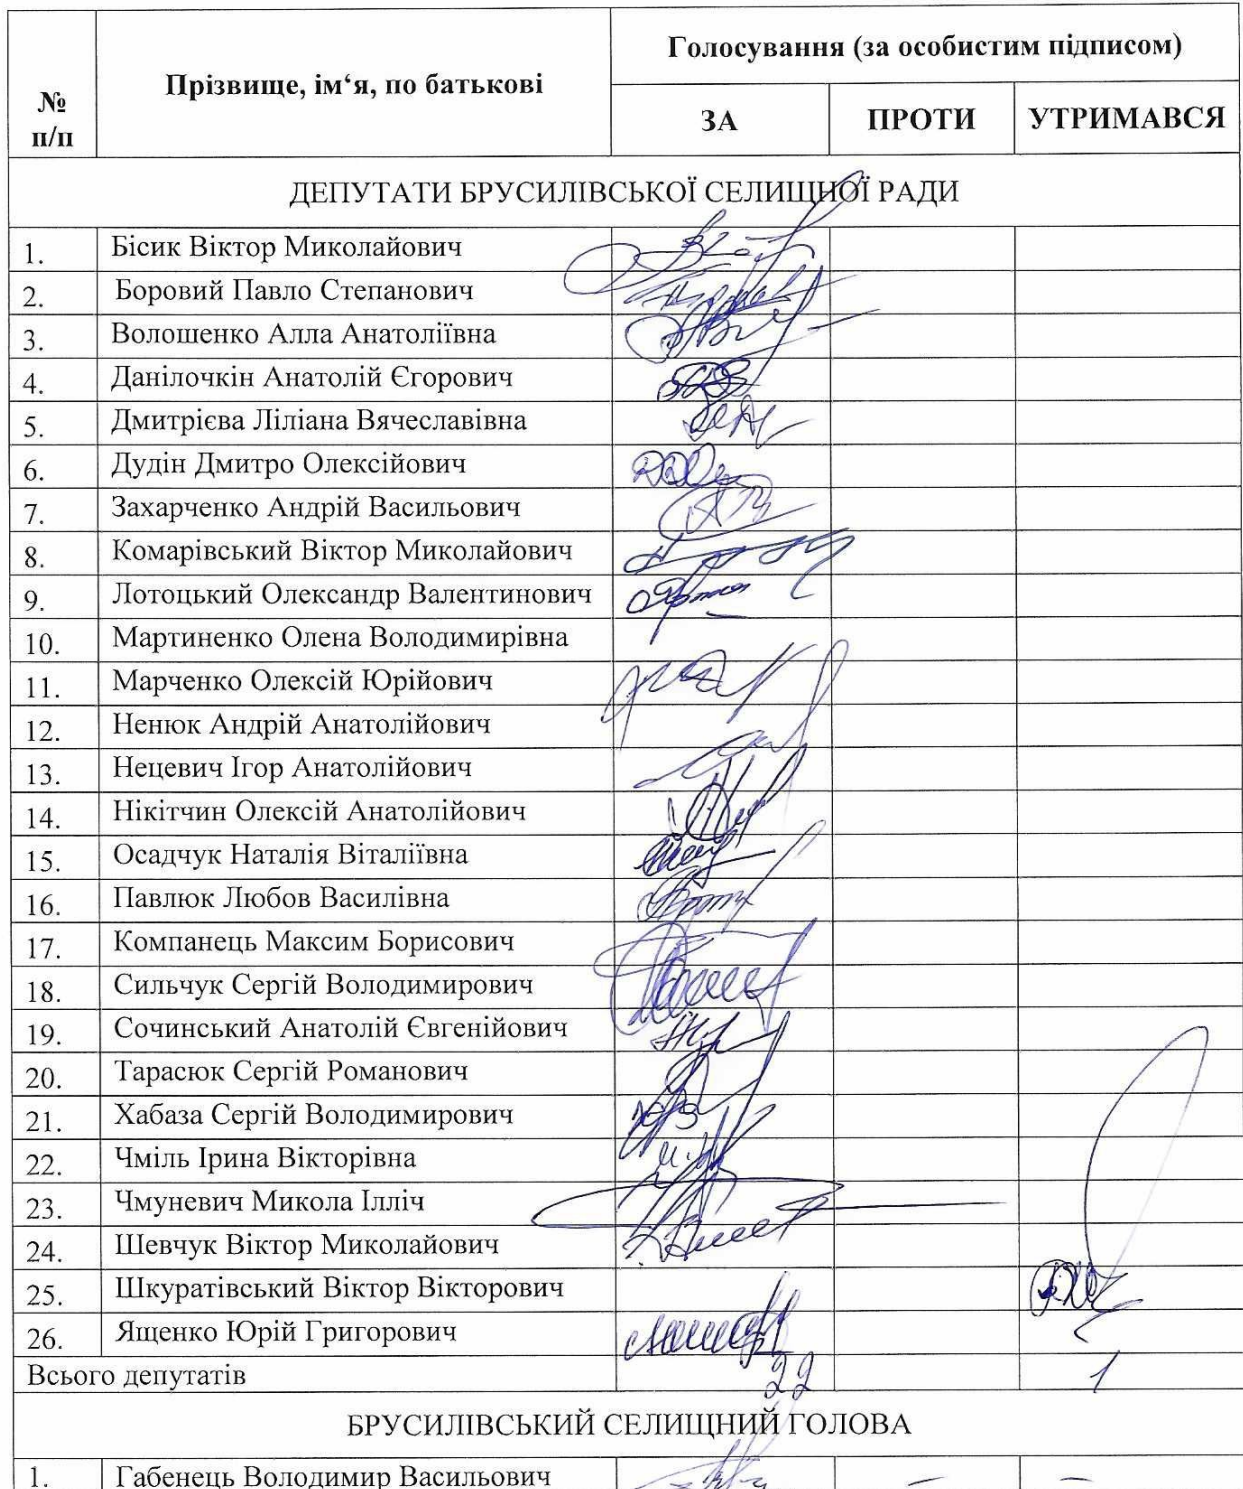 № п/п
Прізвище, ім‘я, по батькові
Голосування (за особистим підписом)
ЗА ПРОТИ УТРИМАВСЯ
ДЕПУТАТИ БРУСИЛІВСЬКОЇ СЕЛИЩНОЇ РАДИ
1. Бісик Віктор Миколайович
2. Боровий Павло Степанович
3. Волошенко Алла Анатоліївна
4. Данілочкін Анатолій Єгорович
5. Дмитрієва Ліліана Вячеславівна
6. Дудін Дмитро Олексійович
7. Захарченко Андрій Васильович
8. Комарівський Віктор Миколайович
9. Лотоцький Олександр Валентинович
10. Мартиненко Олена Володимирівна
11. Марченко Олексій Юрійович
12. Ненюк Андрій Анатолійович
13. Нецевич Ігор Анатолійович
14. Нікітчин Олексій Анатолійович
15. Осадчук Наталія Віталіївна
16. Павлюк Любов Василівна
17. Компанець Максим Борисович
18. Сильчук Сергій Володимирович
19. Сочинський Анатолій Євгенійович
20. Тарасюк Сергій Романович
21. Хабаза Сергій Володимирович
22. Чміль Ірина Вікторівна
23. Чмуневич Микола Ілліч
24. Шевчук Віктор Миколайович
25. Шкуратівський Віктор Вікторович
26. Ященко Юрій Григорович
Всього депутатів 22 1
БРУСИЛІВСЬКИЙ СЕЛИЩНИЙ ГОЛОВА
1. Габенець Володимир Васильович – –